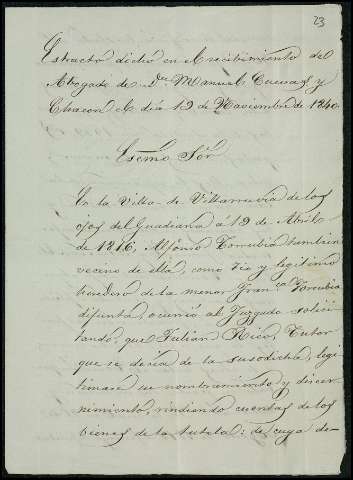 23
Estracto dicho en el recibimiento del
Abogado de Dn. Manuel Cuevas y
Chacon el dia 19 de Noviembre de 1840.
Escmo Sōr
En la Villa de Villarrubia de los
ojos del Guadiana á 19 de Abril
de 1816, Alfonso Torrubia tambien
vecino de ella, como tio y legitimo
heredero de la menor Franca Torrubia
difunta, ocurrió al Juzgado solici
tando, que Julian Rico, Tutor
que se decia de la susodicha, legi
timase su nombramiento y discer
nimiento, rindiendo cuentas de los
bienes de la tutela: de cuya de-